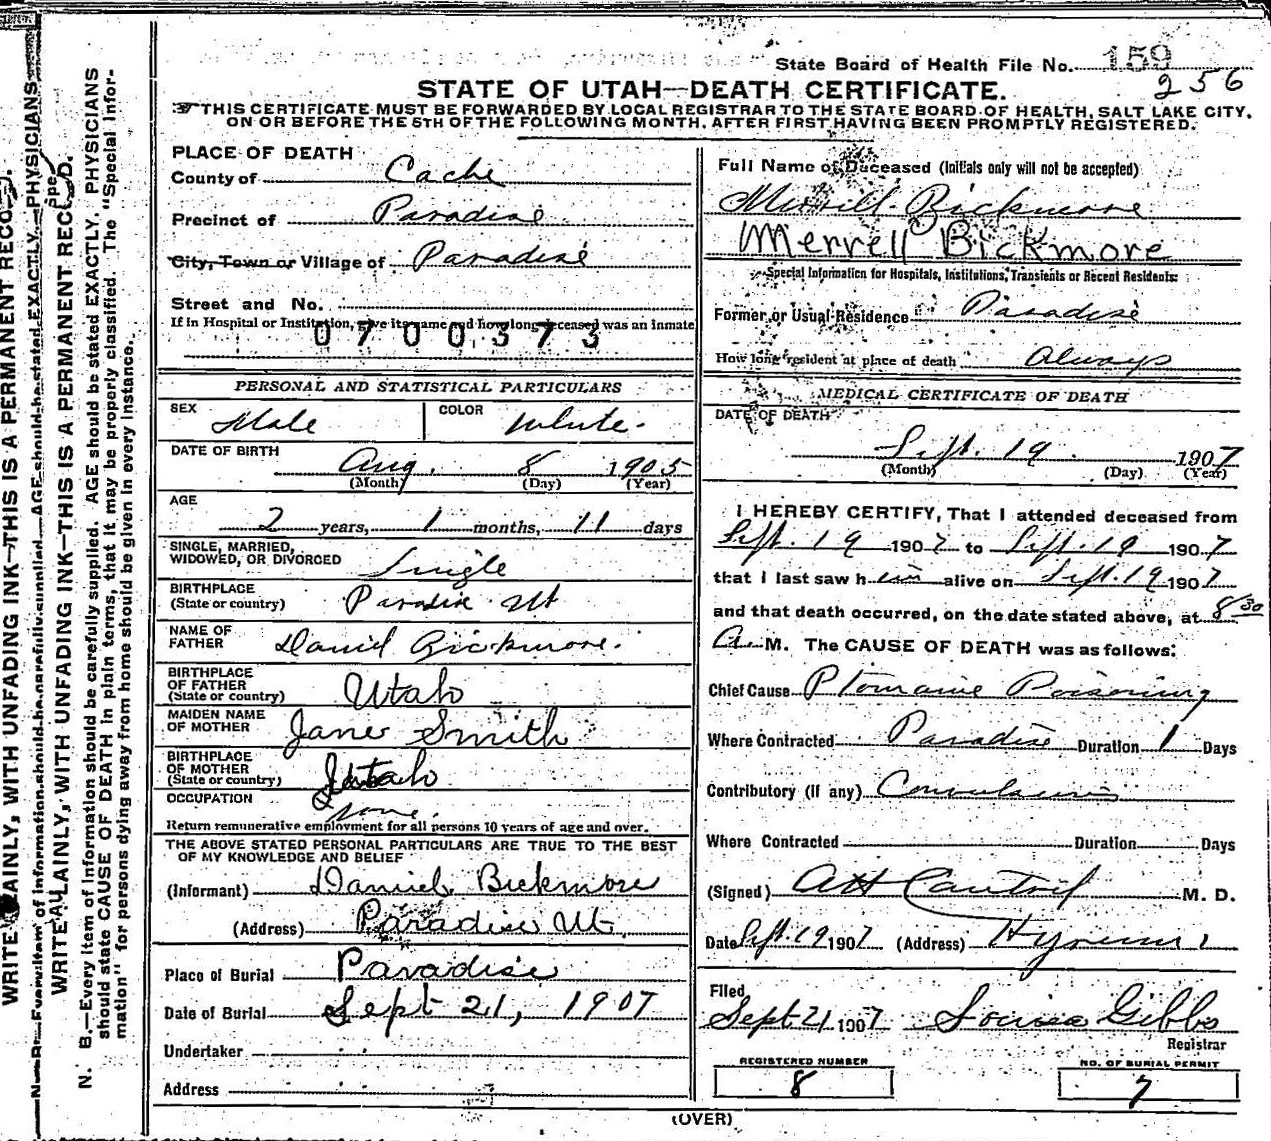 State Board of Health File No. 159
256
STATE OF UTAH—DEATH CERTIFICATE.
THIS CERTIFICATE MUST BE FORWARDED BY LOCAL REGISTRAR TO THE STATE BOARD OF HEALTH, SALT LAKE CITY,
ON OR BEFORE THE 5TH OF THE FOLLOWING MONTH, AFTER FIRST HAVING BEEN PROMPTLY REGISTERED.
PLACE OF DEATH
County of Cache
Precinct of Paradise
City, Town or Village of Paradise
Street and No.
If in Hospital or Institution, give its name and how long deceased was an inmate
0700373
PERSONAL AND STATISTICAL PARTICULARS
SEX Male COLOR White.
DATE OF BIRTH
Aug. 8 1905
(Month) (Day) (Year)
AGE
2 years, 1 months, 11 days
SINGLE, MARRIED,
WIDOWED, OR DIVORCED Single
BIRTHPLACE
(State or country) Paradise Ut
NAME OF
FATHER Daniel Bickmore.
BIRTHPLACE
OF FATHER
(State or country) Utah
MAIDEN NAME
OF MOTHER Jane Smith
BIRTHPLACE
OF MOTHER
(State or country) Utah
OCCUPATION none.
Return remunerative employment for all persons 10 years of age and over.
THE ABOVE STATED PERSONAL PARTICULARS ARE TRUE TO THE BEST
OF MY KNOWLEDGE AND BELIEF
(Informant) Daniel Bickmore
(Address) Paradise Ut.
Place of Burial Paradise
Date of Burial Sept 21, 1907
Undertaker
Address
Full Name of Deceased (Initials only will not be accepted)
Merrill Bickmore
Merrell Bickmore
Special Information for Hospitals, Institutions, Transients or Recent Residents:
Former or Usual Residence Paradise
How long resident at place of death Always
MEDICAL CERTIFICATE OF DEATH
DATE OF DEATH
Sept. 19 1907
(Month) (Day) (Year)
I HEREBY CERTIFY, That I attended deceased from
Sept. 19 1907 to Sept. 19 1907
that I last saw him alive on Sept. 19 1907
and that death occurred, on the date stated above, at 8 30
A. M. The CAUSE OF DEATH was as follows:
Chief Cause Ptomaine Poisoning
Where Contracted Paradise Duration 1 Days
Contributory (if any) Convulsions
Where Contracted Duration Days
(Signed) M. D.
Date Sept. 19 1907 (Address) Hyrum
Filed
Sept 21 1907 Louisa Gibbs
Registrar
REGISTERED NUMBER
8
NO. OF BURIAL PERMIT
7
(OVER)
WRITE PLAINLY, WITH UNFADING INK—THIS IS A PERMANENT RECORD.
N. B.—Every item of information should be carefully supplied. AGE should be stated EXACTLY. PHYSICIANS
should state CAUSE OF DEATH in plain terms, that it may be properly classified. The "Special Infor-
mation" for persons dying away from home should be given in every instance.